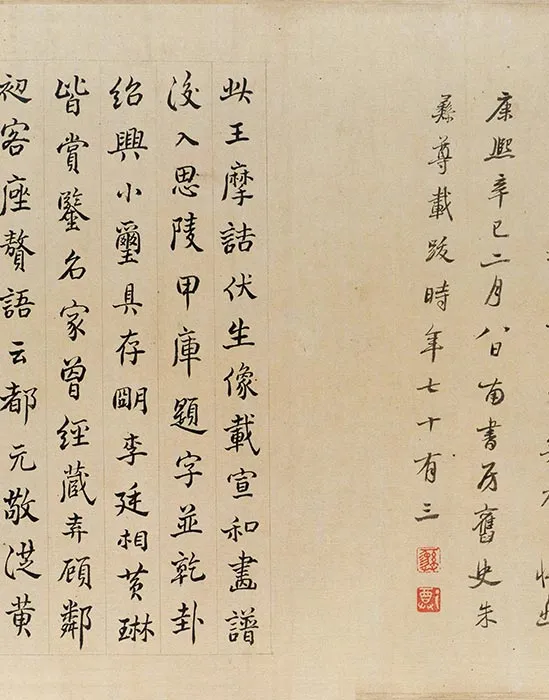 康熙辛巳二月八日南書房舊史朱
彝尊載跋時年七十有三
此王摩詰伏生像載宣和畫譜
後入思陵甲庫題字並乾卦
紹興小璽具存朙李廷相黄琳
皆賞鑒名家曾經藏弆顧鄰
初客座贅語云都元敬從黄